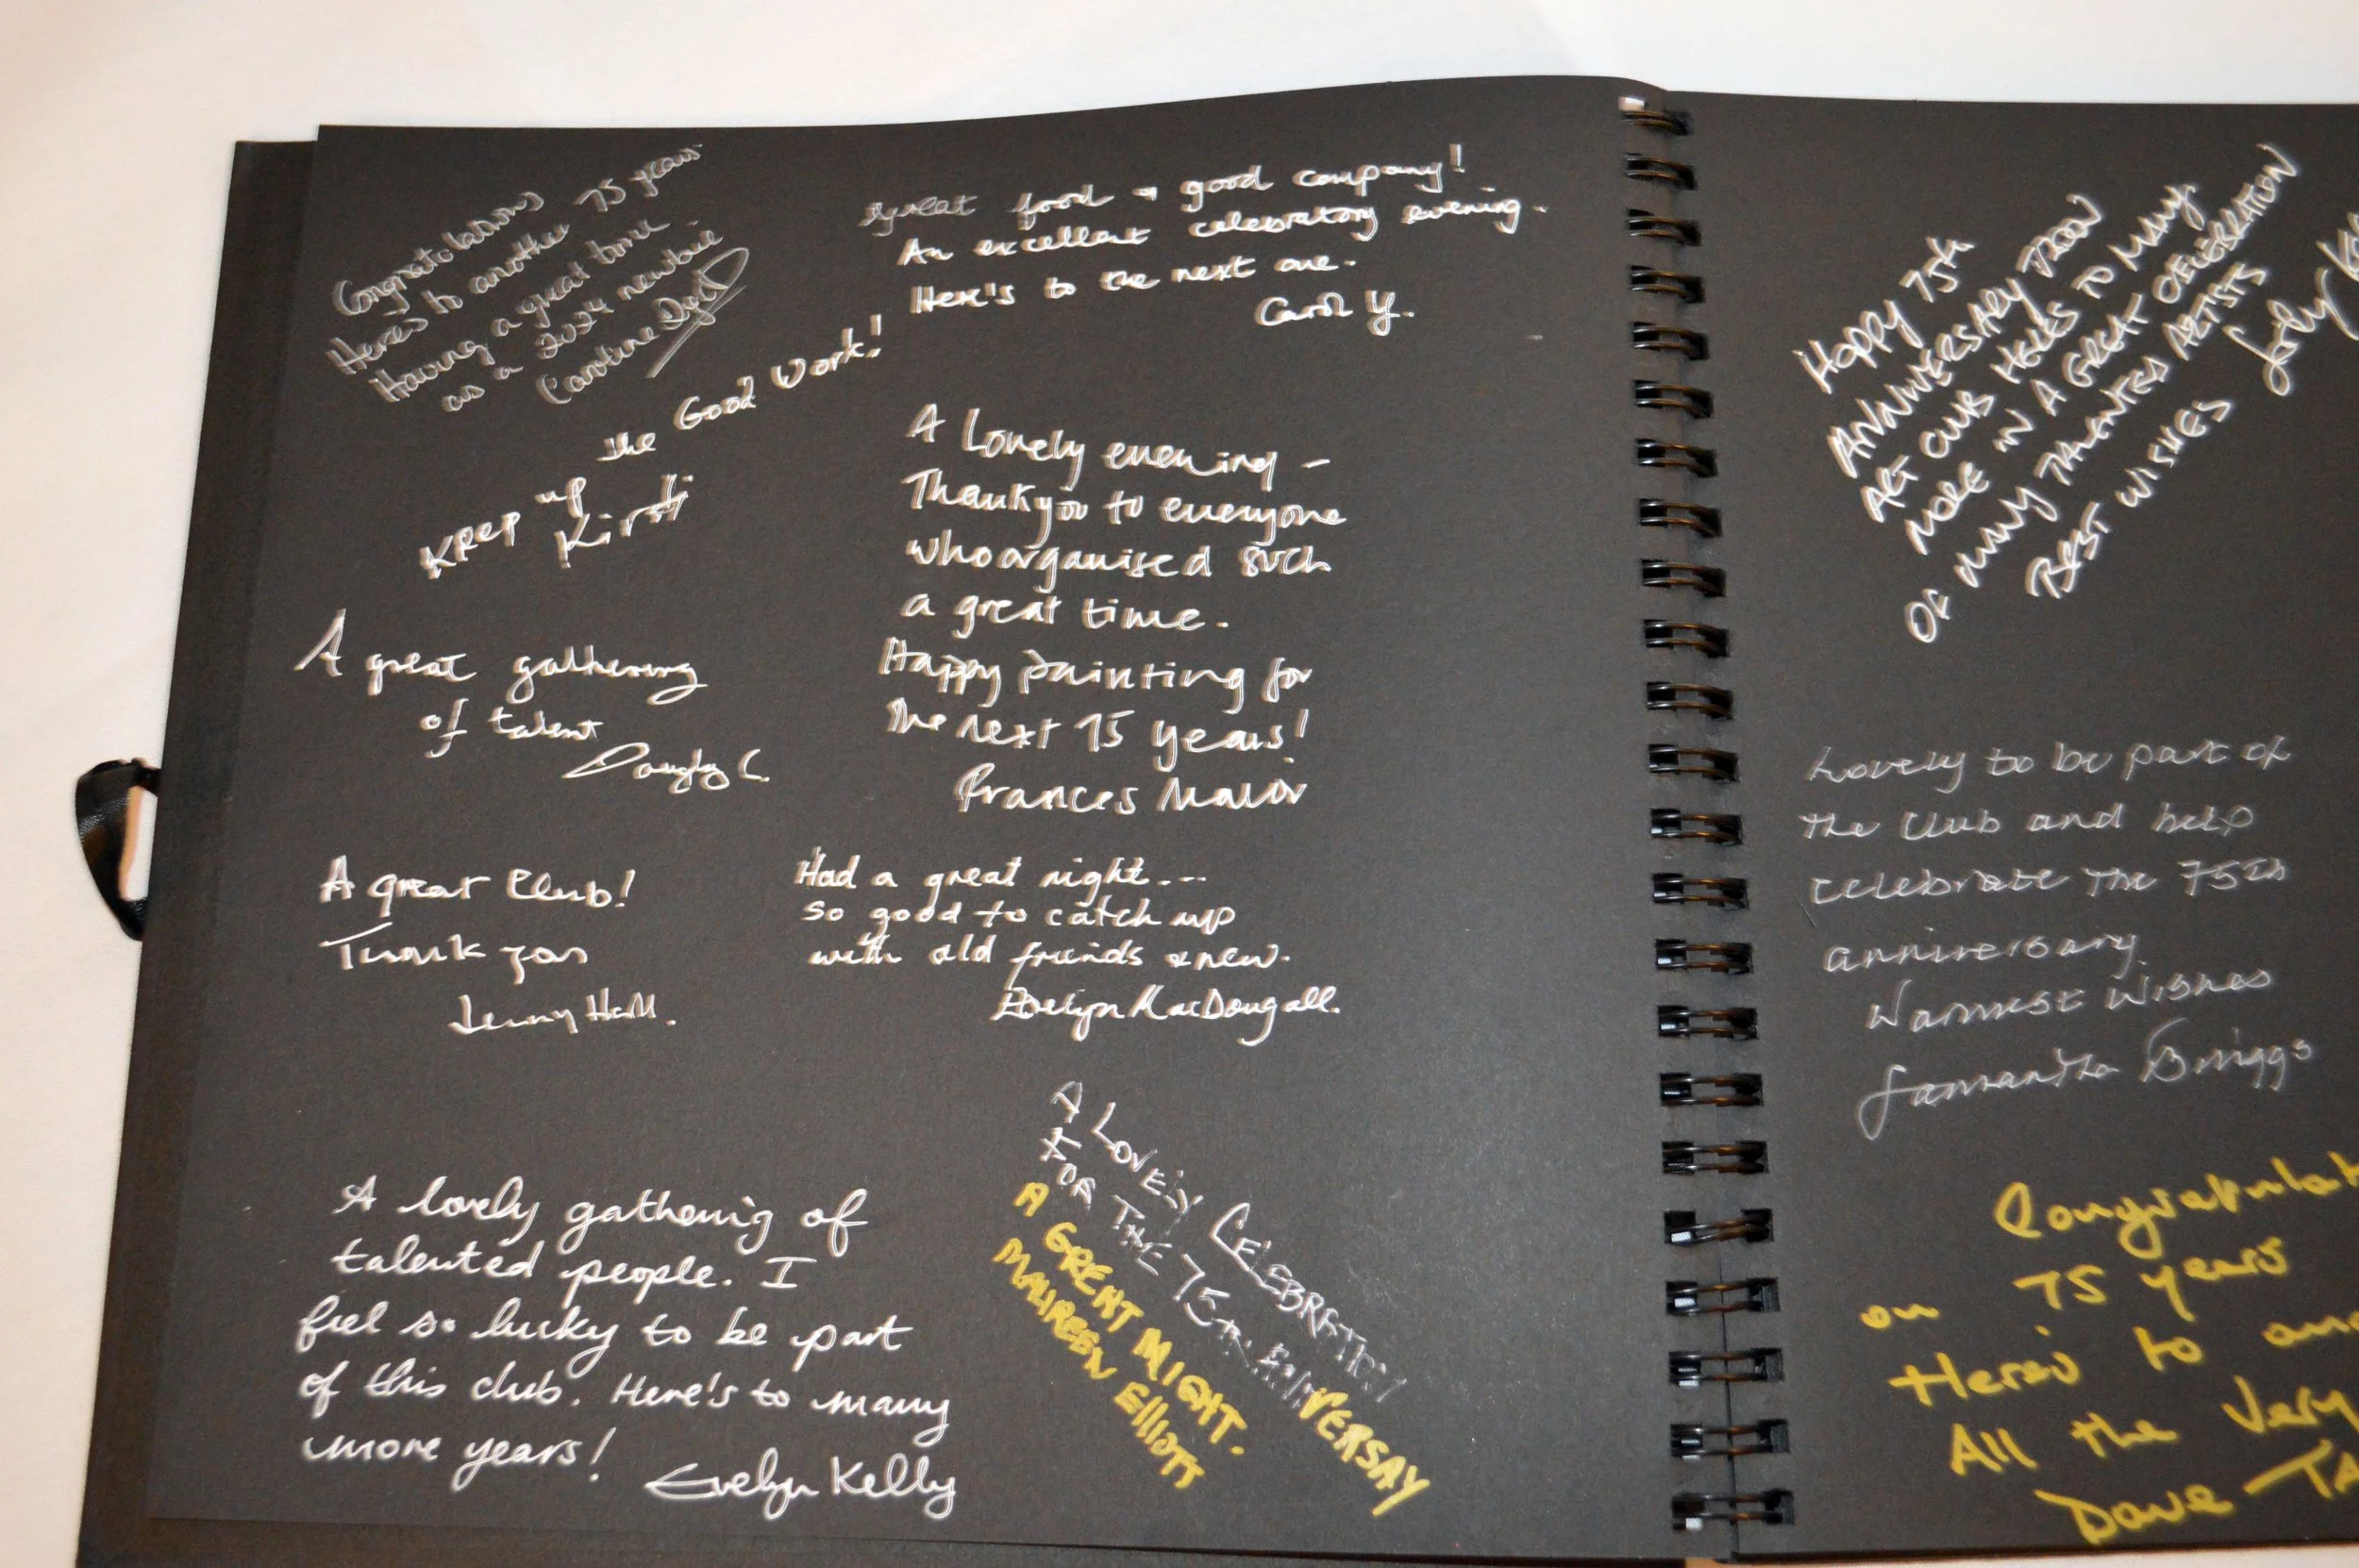 Congratulations
Heres to another 75 years
Having a great time
as a 2024 newbie
Caroline
Great food + good company!
An excellent celebratory evening.
Here's to the next one.
Carol Y.
Keep up the Good Work!
Kirsti
A Lovely evening –
Thankyou to everyone
who organised such
a great time.
Happy painting for
the next 75 years!
Frances
A great gathering
of talent
Douglas C.
A great Club!
Thank you
Jenny Hall.
Had a great night...
so good to catch up
with old friends & new.
Evelyn MacDougall.
A lovely gathering of
talented people. I
feel so lucky to be part
of this club. Here's to many
more years!
Evelyn Kelly
A LOVELY CELEBRATION
FOR THE 75TH ANNIVERSAY
A GREAT NIGHT.
MAUREEN ElliOTT
Happy 75th
ANNIVERSARY TROON
ART CLUB HERES TO MANY
MORE IN A GREAT CELEBRATION
OF MANY TALENTED ARTISTS
BEST WISHES
Lovely to be part of
the Club and help
celebrate the 75th
anniversary.
Warmest Wishes
Samantha Briggs
Congratulat
on 75 years
Here's to
All the Very
Dave TA